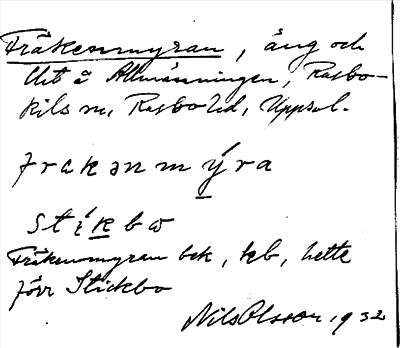 Fräkenmyran, äng och
Uet å Allmänningen, Rasbo-
kils sn, Rasbo hd, Uppsal.
frakənmýra
stíkbω
Fräkenmyran bek, kb, hette
förr Stickbo
Nils Olsson 1932